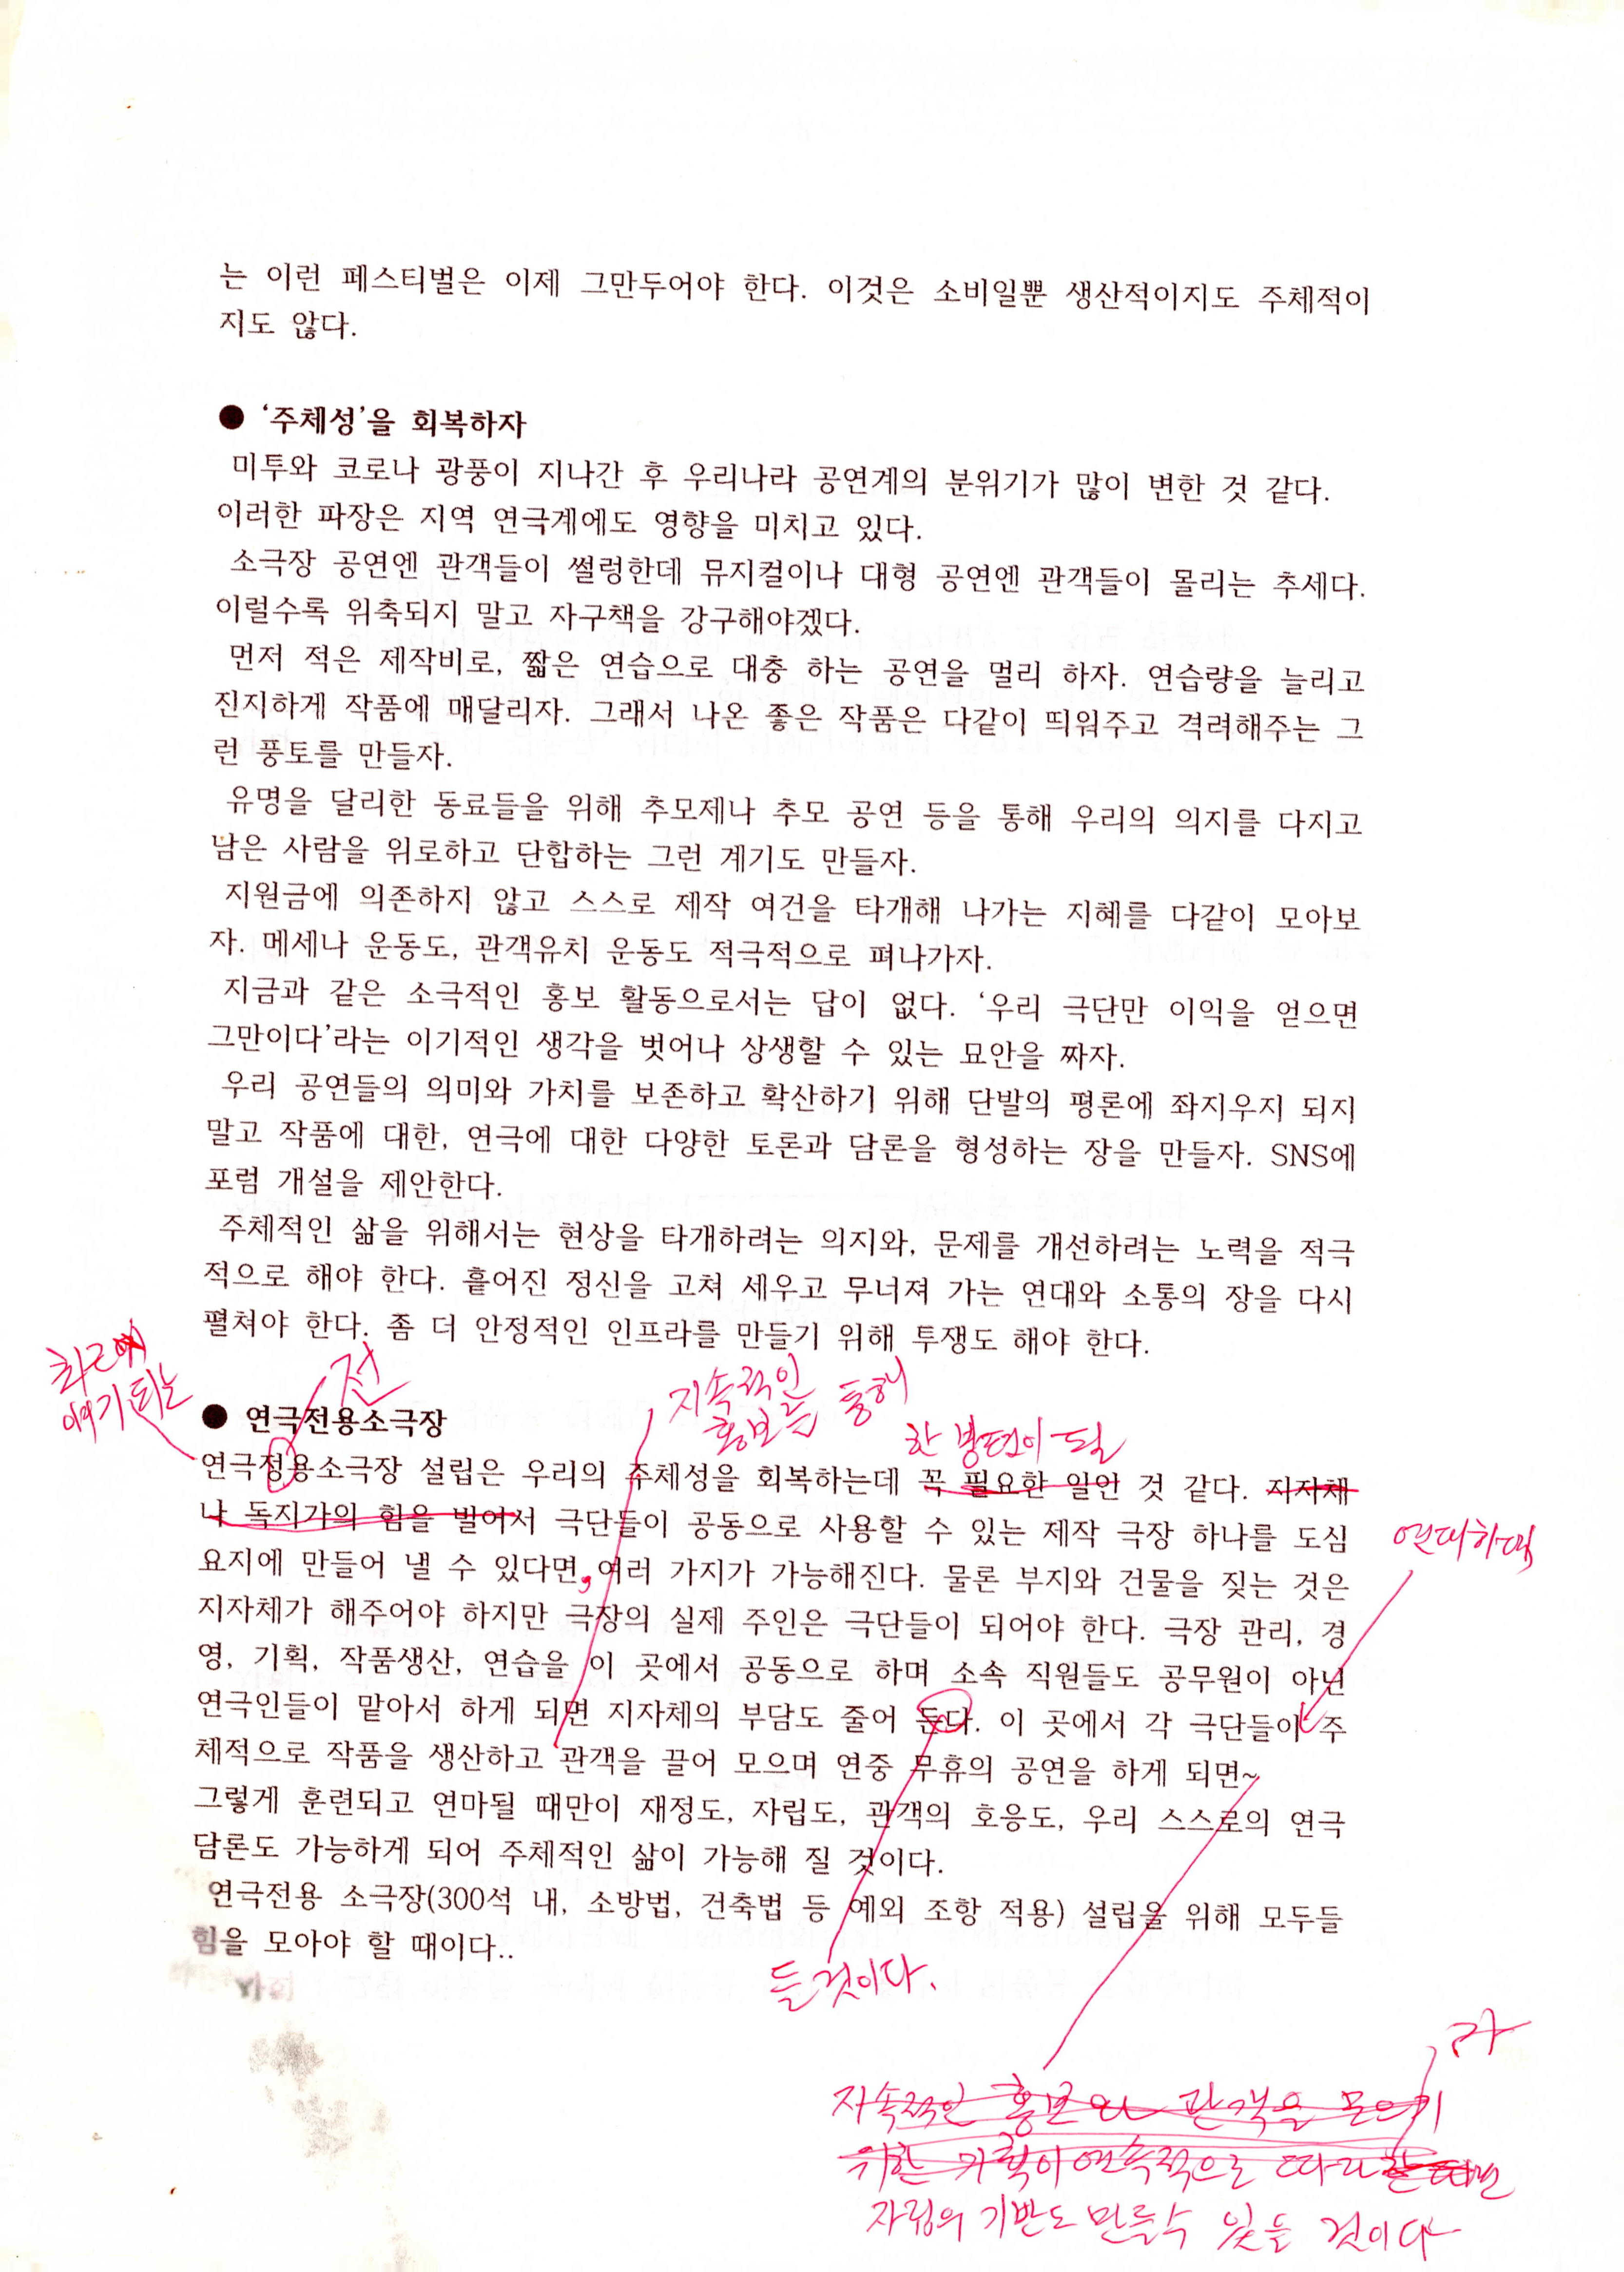 는 이런 페스티벌은 이제 그만두어야 한다. 이것은 소비일뿐 생산적이지도 주체적이
지도 않다.
● ‘주체성’을 회복하자
미투와 코로나 광풍이 지나간 후 우리나라 공연계의 분위기가 많이 변한 것 같다.
이러한 파장은 지역 연극계에도 영향을 미치고 있다.
소극장 공연엔 관객들이 썰렁한데 뮤지컬이나 대형 공연엔 관객들이 몰리는 추세다.
이럴수록 위축되지 말고 자구책을 강구해야겠다.
먼저 적은 제작비로, 짧은 연습으로 대충 하는 공연을 멀리 하자. 연습량을 늘리고
진지하게 작품에 매달리자. 그래서 나온 좋은 작품은 다같이 띄워주고 격려해주는 그
런 풍토를 만들자.
유명을 달리한 동료들을 위해 추모제나 추모 공연 등을 통해 우리의 의지를 다지고
남은 사람을 위로하고 단합하는 그런 계기도 만들자.
지원금에 의존하지 않고 스스로 제작 여건을 타개해 나가는 지혜를 다같이 모아보
자. 메세나 운동도, 관객유치 운동도 적극적으로 펴나가자.
지금과 같은 소극적인 홍보 활동으로서는 답이 없다. ‘우리 극단만 이익을 얻으면
그만이다’라는 이기적인 생각을 벗어나 상생할 수 있는 묘안을 짜자.
우리 공연들의 의미와 가치를 보존하고 확산하기 위해 단발의 평론에 좌지우지 되지
말고 작품에 대한, 연극에 대한 다양한 토론과 담론을 형성하는 장을 만들자. SNS에
포럼 개설을 제안한다.
주체적인 삶을 위해서는 현상을 타개하려는 의지와, 문제를 개선하려는 노력을 적극
적으로 해야 한다. 흩어진 정신을 고쳐 세우고 무너져 가는 연대와 소통의 장을 다시
펼쳐야 한다. 좀 더 안정적인 인프라를 만들기 위해 투쟁도 해야 한다.
최근에
이야기되는
전
지속적인
홍보를 통해
● 연극전용소극장
한 방편이 될
연극정용소극장 설립은 우리의 주체성을 회복하는데 꼭 필요한 일인 것 같다. 지자체
나 독지가의 힘을 빌어서 극단들이 공동으로 사용할 수 있는 제작 극장 하나를 도심
연대하며
요지에 만들어 낼 수 있다면, 여러 가지가 가능해진다. 물론 부지와 건물을 짖는 것은
지자체가 해주어야 하지만 극장의 실제 주인은 극단들이 되어야 한다. 극장 관리, 경
영, 기획, 작품생산, 연습을 이 곳에서 공동으로 하며 소속 직원들도 공무원이 아닌
연극인들이 맡아서 하게 되면 지자체의 부담도 줄어 든다. 이 곳에서 각 극단들이 주
체적으로 작품을 생산하고 관객을 끌어 모으며 연중 무휴의 공연을 하게 되면~
그렇게 훈련되고 연마될 때만이 재정도, 자립도, 관객의 호응도, 우리 스스로의 연극
담론도 가능하게 되어 주체적인 삶이 가능해 질 것이다.
연극전용 소극장(300석 내, 소방법, 건축법 등 예외 조항 적용) 설립을 위해 모두들
힘을 모아야 할 때이다..
들 것이다.
지속적인 홍보와 관객을 모으기
위한 기획이 연속적으로 따라
자립의 기반도 만들 수 있을 것이다